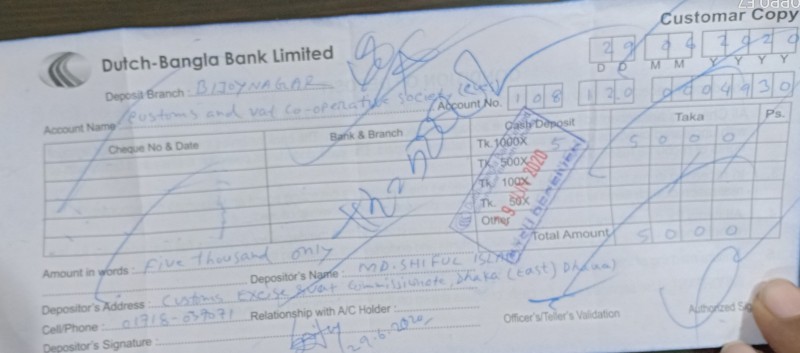 Customar Copy
Dutch-Bangla Bank Limited
29 06 2020
D D M M Y Y Y Y
Deposit Branch : BIJOYNAGAR
Account Name : Customs and vat co-operative society
Account No. 108 120
Cheque No & Date Bank & Branch Cash Deposit Taka Ps.
Tk. 1000X 5 5000
Tk. 500X
Tk. 100X
Tk. 50X
Other
29 JUN 2020
Total Amount 5000
Amount in words : Five thousand only
Depositor's Name : MD. SHIFUL ISLAM
Depositor's Address : Customs Excise & vat Commissionate, Dhaka (East) Dhaka
Cell/Phone : 01718-037071 Relationship with A/C Holder :
Depositor's Signature : 29.6.2020
Officer's/Teller's Validation
Authorized